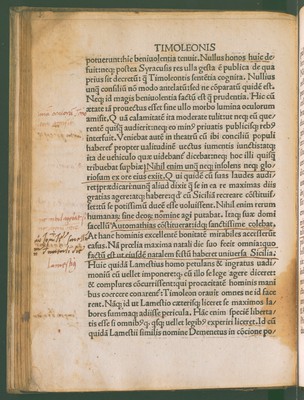 TIMOLEONIS
potuerunt:hic beniuolentia tenuit. Nullus honos huic de
fuit:neq; postea Syracusis res ulla gesta ē publica de qua
prius sit decretū: q̄ Timoleonis sentētia cognita. Nullius
unq̄ consiliū nō modo antelatū:sed ne cōparatū quidē est.
Neq; id magis beniuolentia factū est q̄ prudentia. Hic cū
ætate iā prouectus esset sine ullo morbo lumina oculorum
amisit. Quā calamitatē ita moderate tulit:ut neq; eū que-
rentē quisq̄ audierit:neq; eo min9 priuatis publicisq; reb9
interfuit. Veniebat autē in theatrū cū ibi conciliū populi
haberet propter ualitudinē uectus iumentis iunctis:atq;
ita de uehiculo quæ uidebant dicebat:neq; hoc illi quisq̄
tribuebat supbiæ: Nihil enim unq̄ neq; insolens neq; glo-
riosum ex ore eius exiit. Qui quidē cū suas laudes audi-
ret:prædicari:nunq̄ aliud dixit q̄ se in ea re maximas diis
gratias agere:atq; habere: q̄ cū Siciliā recreare cōstituis-
sent:tū se potissimū ducē esse uoluissent. Nihil enim rerum
humanaꝝ sine deoꝝ nomine agi putabat. Itaq; suæ domi
sacellū Automathias cōstituerat:idq; sanctissime colebat.
At hanc hominis excellentē bonitatē mirabiles accesserūt
casus. Nā prælia maxima natali die suo fecit omnia:quo
factū est ut eius diē natalem festū haberet uniuersa Sicilia.
Huic quidā Lamestius homo petulans & ingratus uadi-
moniū cū uellet imponere:q; cū illo se lege agere diceret
& complures cōcurrissent:qui procacitatē hominis mani
bus coercere conarent: Timoleon orauit omnes ne id face
rent. Nāq; id ut Lamestio cæterisq; liceret se maximos la-
bores summaq; adiisse pericula. Hāc enim speciē liberta-
tis esse si omnib9 q; qsq; uellet legib9 experiri liceret. Id cū
quidā Lamestii similis nomine Demenetus in cōcione po